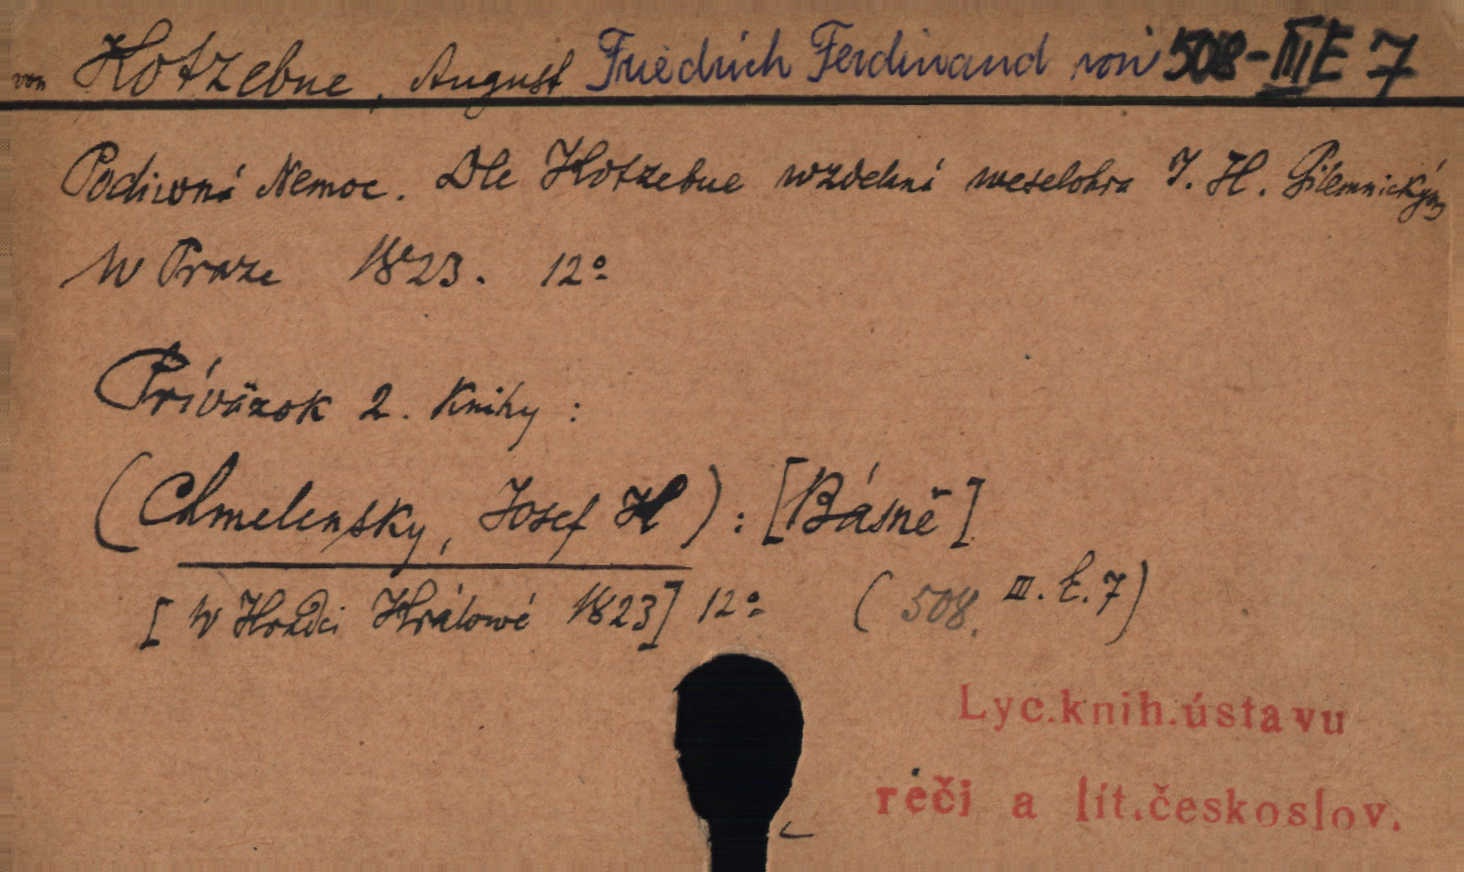 von Kotzebue, August Friedrich Ferdinand von 508-III E 7
Podiwná Nemoc. Dle Kotzebue wzdelaná weselohra J. H. Pilemnickým
W Praze 1823. 12º
Prívázok 2. Knihy :
(Chmelensky, Josef K) : [Básně]
[W Hradci Králowé 1823] 12º (508. III. E. 7)
Lyc.knih.ústavu
rečí a lít.českoslov.